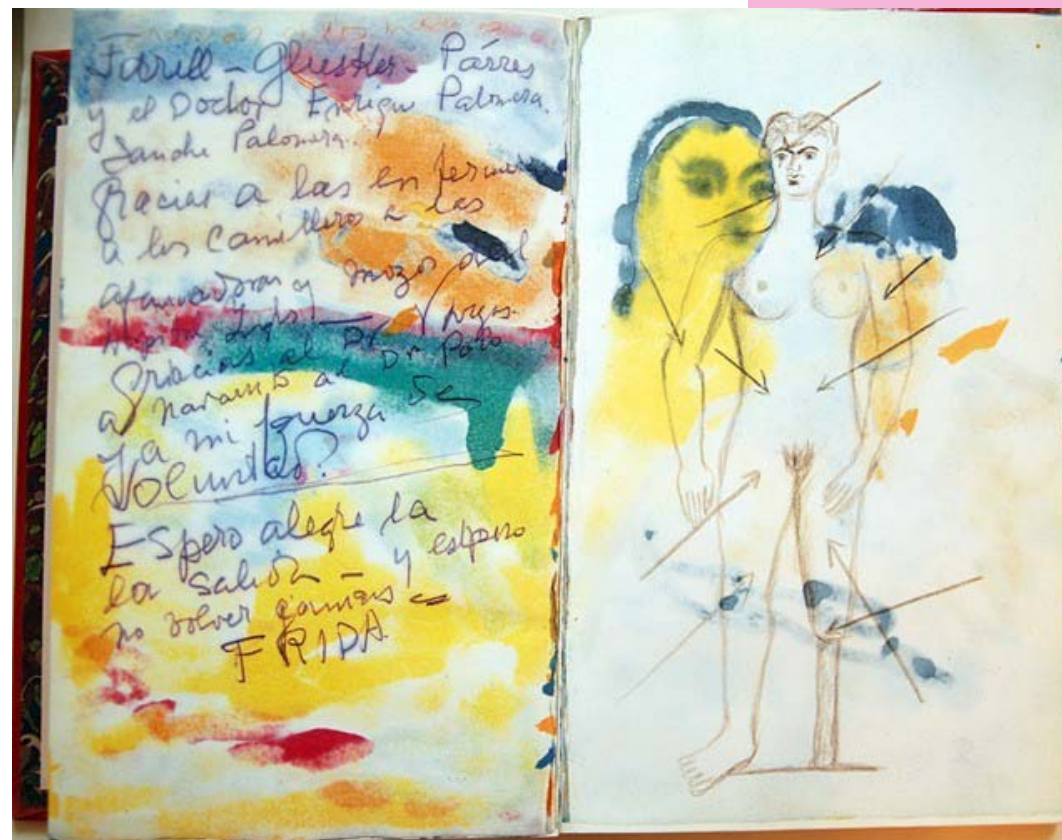 Farill – Glusker – Párres
y el Doctor Enrique Palomera
Sanche Palomera.
Gracias a las enfermeras
a los Camilleros a las
afanadoras y mozos del
Gracias al Dr
a Navarro al Dr Polo
y a mi fuerza de
Voluntad?
Espero alegre la
la salida – y espero
no volver jamas –
FRIDA